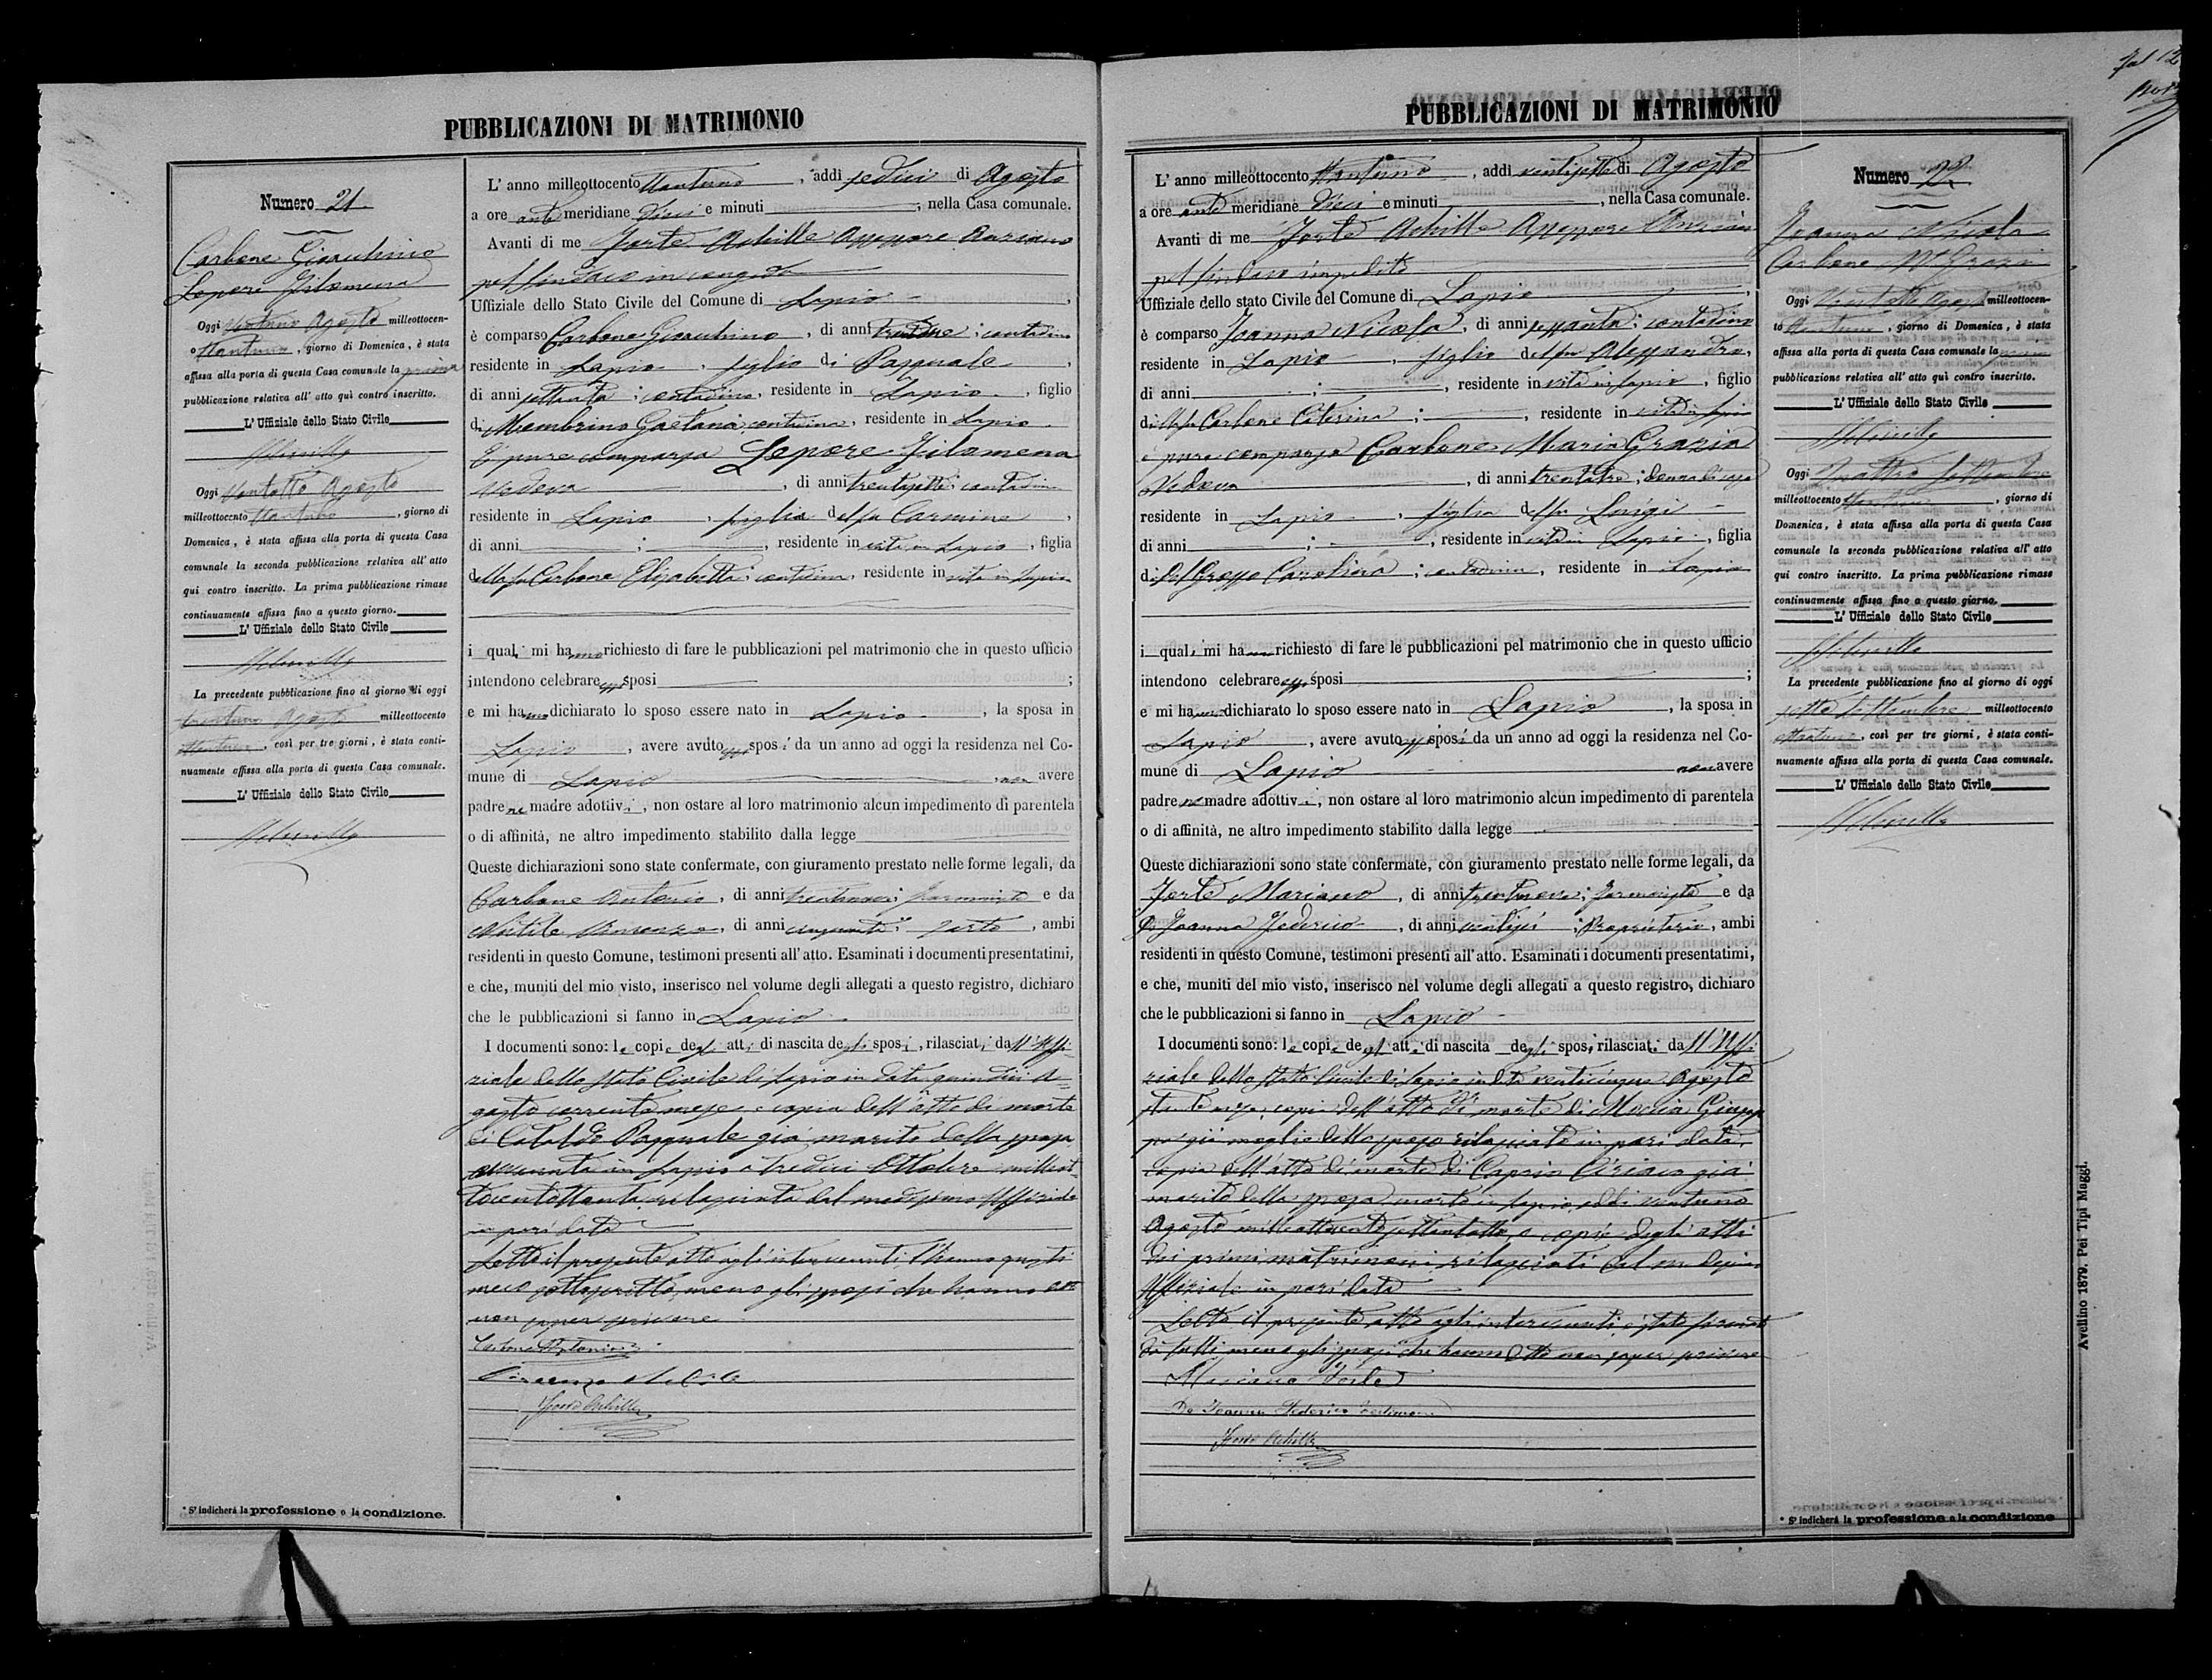 PUBBLICAZIONI DI MATRIMONIO
Numero 21
Carbone Gioacchino
Lepore Filomena
Oggi Ventuno Agosto milleottocen-
to ottantuno, giorno di Domenica, è stata
affissa alla porta di questa Casa comunale la prima
pubblicazione relativa all' atto quì contro inscritto.
L' Uffiziale dello Stato Civile
Oggi Ventotto Agosto
milleottocento ottantuno, giorno di
Domenica, è stata affissa alla porta di questa Casa
comunale la seconda pubblicazione relativa all' atto
qui contro inscritto. La prima pubblicazione rimase
continuamente affissa fino a questo giorno.
L' Uffiziale dello Stato Civile
La precedente pubblicazione fino al giorno di oggi
trentuno Agosto milleottocento
ottantuno, così per tre giorni, è stata conti-
nuamente affissa alla porta di questa Casa comunale.
L' Uffiziale dello Stato Civile
* S' indicherà la professione o la condizione.
L' anno milleottocento ottantuno, addì sedici di Agosto
a ore ante meridiane dieci e minuti , nella Casa comunale.
Avanti di me Forte Achille Assessore Anziano
pel Sindaco in congedo
Uffiziale dello Stato Civile del Comune di Lapio
è comparso Carbone Gioacchino, di anni ; contadino
residente in Lapio, figlio di Pasquale,
di anni settanta; contadino, residente in Lapio, figlio
di Membrino Gaetana contadina, residente in Lapio
È pure comparsa Lepore Filomena
Vedova , di anni trentasette; contadina
residente in Lapio, figlia del fu Carmine,
di anni ; , residente in vita in Lapio, figlia
della fu Carbone Elisabetta; contadina, residente in vita in Lapio
i quali mi hanno richiesto di fare le pubblicazioni pel matrimonio che in questo ufficio
intendono celebrare essi sposi ;
e mi hanno dichiarato lo sposo essere nato in Lapio, la sposa in
Lapio, avere avuto essi sposi da un anno ad oggi la residenza nel Co-
mune di Lapio , non avere
padre ne madre adottivi, non ostare al loro matrimonio alcun impedimento di parentela
o di affinità, ne altro impedimento stabilito dalla legge
Queste dichiarazioni sono state confermate, con giuramento prestato nelle forme legali, da
Carbone Antonio, di anni ; farmacista e da
Vincenzo, di anni cinquanta; sarto, ambi
residenti in questo Comune, testimoni presenti all' atto. Esaminati i documenti presentatimi,
e che, muniti del mio visto, inserisco nel volume degli allegati a questo registro, dichiaro
che le pubblicazioni si fanno in Lapio
I documenti sono: le copie degli atti di nascita degli sposi, rilasciati dall'Uffi-
ziale dello Stato Civile di Lapio in data quindici A-
gosto corrente mese e copia dell'atto di morte
di Cataldo Pasquale già marito della sposa
avvenuta in Lapio a tredici Ottobre milleot-
tocentottanta rilasciata dal medesimo Uffiziale
in pari data
Letto il presente atto agli intervenuti l'hanno questi
meco sottoscritto, meno gli sposi che hanno detto
non saper scrivere
Carbone Antonio
Forte Achille
PUBBLICAZIONI DI MATRIMONIO
L' anno milleottocento ottantuno, addì ventisette di Agosto
a ore ante meridiane dieci e minuti , nella Casa comunale.
Avanti di me Forte Achille Assessore Anziano
pel Sindaco impedito
Uffiziale dello stato Civile del Comune di Lapio
è comparso Joanna Nicola, di anni sessanta; contadino
residente in Lapio, figlio del fu Alessandro,
di anni ; , residente in vita in Lapio, figlio
della fu Carbone Caterina; , residente in vita in Lapio
è pure comparsa Carbone Maria Grazia
Vedova , di anni trentatre; donna di casa
residente in Lapio, figlia del fu Luigi
di anni ; , residente in vita in Lapio, figlia
di Del Grosso Carolina; contadina, residente in Lapio
i quali mi hanno richiesto di fare le pubblicazioni pel matrimonio che in questo ufficio
intendono celebrare essi sposi ;
e mi hanno dichiarato lo sposo essere nato in Lapio, la sposa in
Lapio, avere avuto essi sposi da un anno ad oggi la residenza nel Co-
mune di Lapio non avere
padre ne madre adottivi, non ostare al loro matrimonio alcun impedimento di parentela
o di affinità, ne altro impedimento stabilito dalla legge
Queste dichiarazioni sono state confermate, con giuramento prestato nelle forme legali, da
Forte Mariano, di anni trentanove; farmacista e da
De Joanna Federico, di anni ventisei; Proprietario, ambi
residenti in questo Comune, testimoni presenti all' atto. Esaminati i documenti presentatimi,
e che, muniti del mio visto, inserisco nel volume degli allegati a questo registro, dichiaro
che le pubblicazioni si fanno in Lapio
I documenti sono: le copie degli atti di nascita degli sposi, rilasciati dall'Uffi-
ziale dello Stato Civile di Lapio in data venticinque Agosto
mese, copia dell'atto di morte di Moccia Giusep-
pa già moglie dello sposo rilasciata in pari data,
copia dell'atto di morte di Caprio Ciriaco già
marito della sposa morto in Lapio addì ventuno
Agosto milleottocento settantotto, e copie degli atti
dei primi matrimoni rilasciati dal medesimo
Uffiziale in pari data
Letto il presente atto agli intervenuti è stato firmato
da tutti meno gli sposi che hanno detto non saper scrivere
Mariano Forte
De Joanna Federico testimone
Forte Achille
Numero 22
Joanna Nicola
Carbone Mª Grazia
Oggi Ventotto Agosto milleottocen-
to ottantuno, giorno di Domenica, è stata
affissa alla porta di questa Casa comunale la prima
pubblicazione relativa all' atto quì contro inscritto.
L' Uffiziale dello Stato Civile
Oggi Quattro Settembre
milleottocento ottantuno, giorno di
Domenica, è stata affissa alla porta di questa Casa
comunale la seconda pubblicazione relativa all' atto
qui contro inscritto. La prima pubblicazione rimase
continuamente affissa fino a questo giorno.
L' Uffiziale dello Stato Civile
La precedente pubblicazione fino al giorno di oggi
sette Settembre milleottocento
ottantuno, così per tre giorni, è stata conti-
nuamente affissa alla porta di questa Casa comunale.
L' Uffiziale dello Stato Civile
* S' indicherà la professione o la condizione
Avellino 1879. Pei Tipi Maggi.